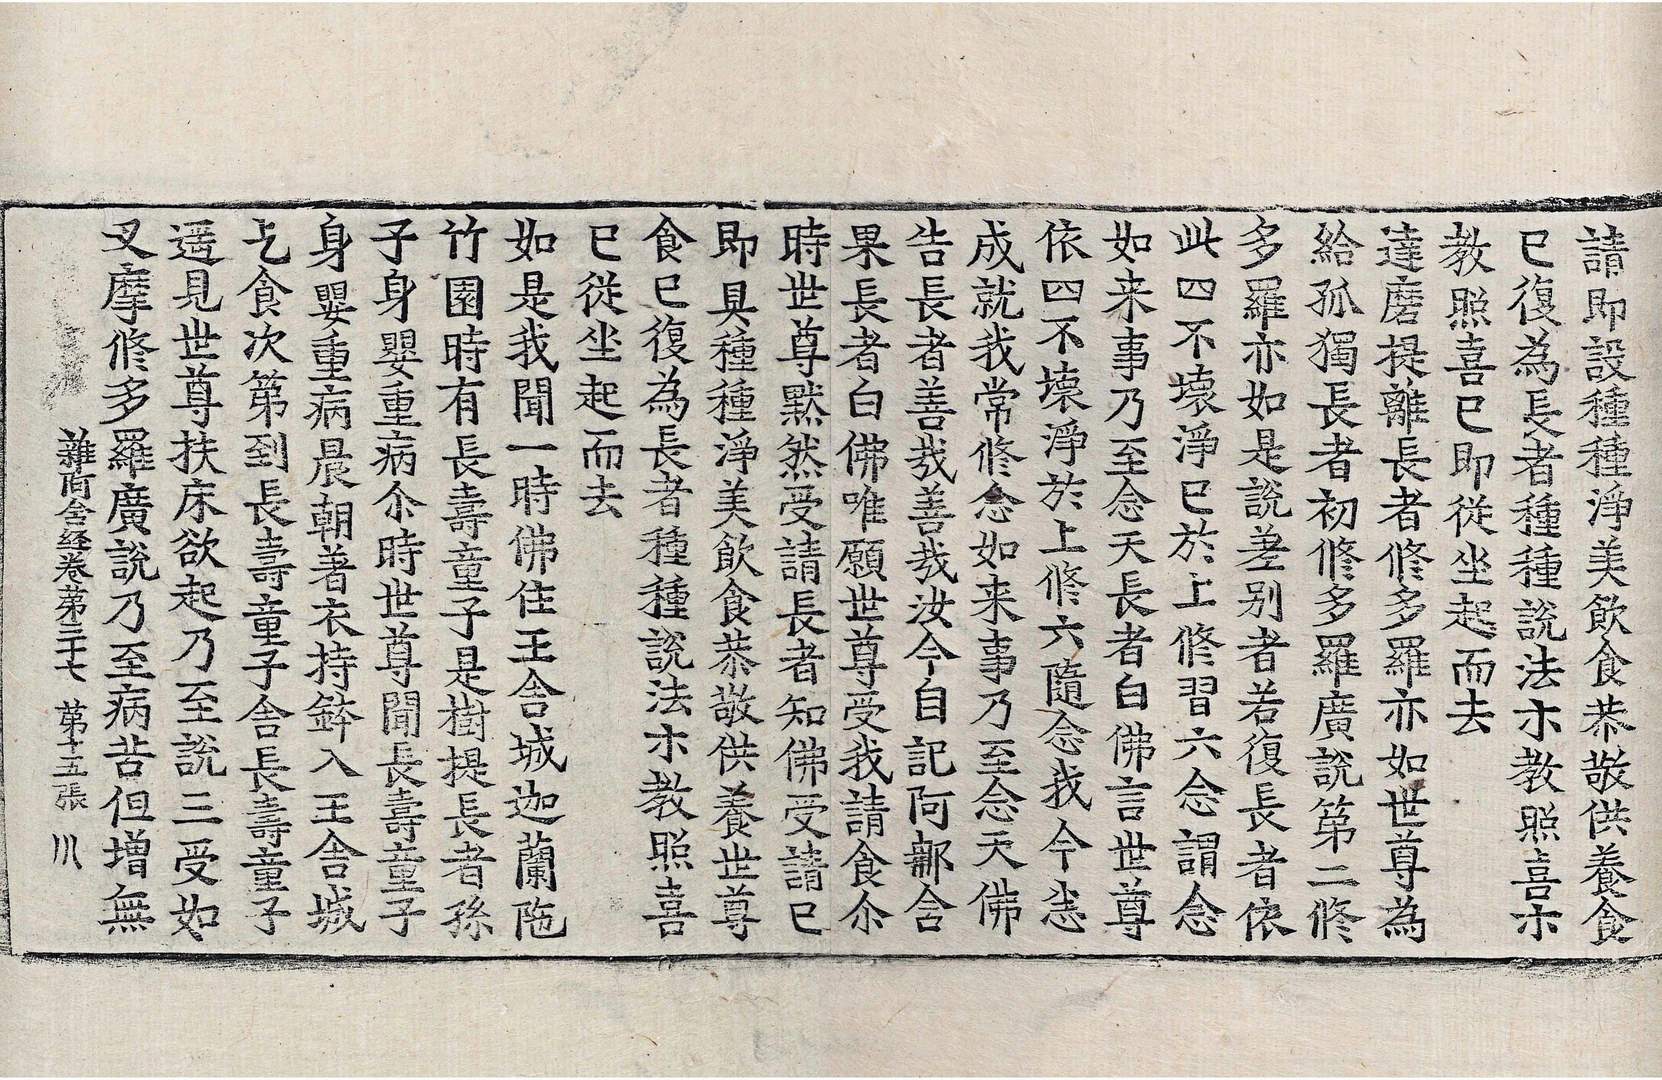 請即設種種淨美飲食恭敬供養食
已復為長者種種說法示教照喜示
教照喜已即從坐起而去
達磨提離長者修多羅亦如世尊為
給孤獨長者初修多羅廣說第二修
多羅亦如是說差別者若復長者依
此四不壞淨已於上修習六念謂念
如来事乃至念天長者白佛言世尊
依四不壞淨於上修六隨念我今悉
成就我常修念如来事乃至念天佛
告長者善㢤善㢤汝今自記阿那含
果長者白佛唯願世尊受我請食尒
時世尊默然受請長者知佛受請已
即具種種淨美飲食恭敬供養世尊
食已復為長者種種說法示教照喜
已從坐起而去
如是我聞一時佛住王舍城迦蘭陁
竹園時有長壽童子是樹提長者孫
子身嬰重病尒時世尊聞長壽童子
身嬰重病晨朝著衣持鉢入王舍城
乞食次第到長壽童子舍長壽童子
遥見世尊扶床欲起乃至說三受如
叉摩修多羅廣說乃至病苦但增無
雜阿含經卷第三十七 第十五張 川